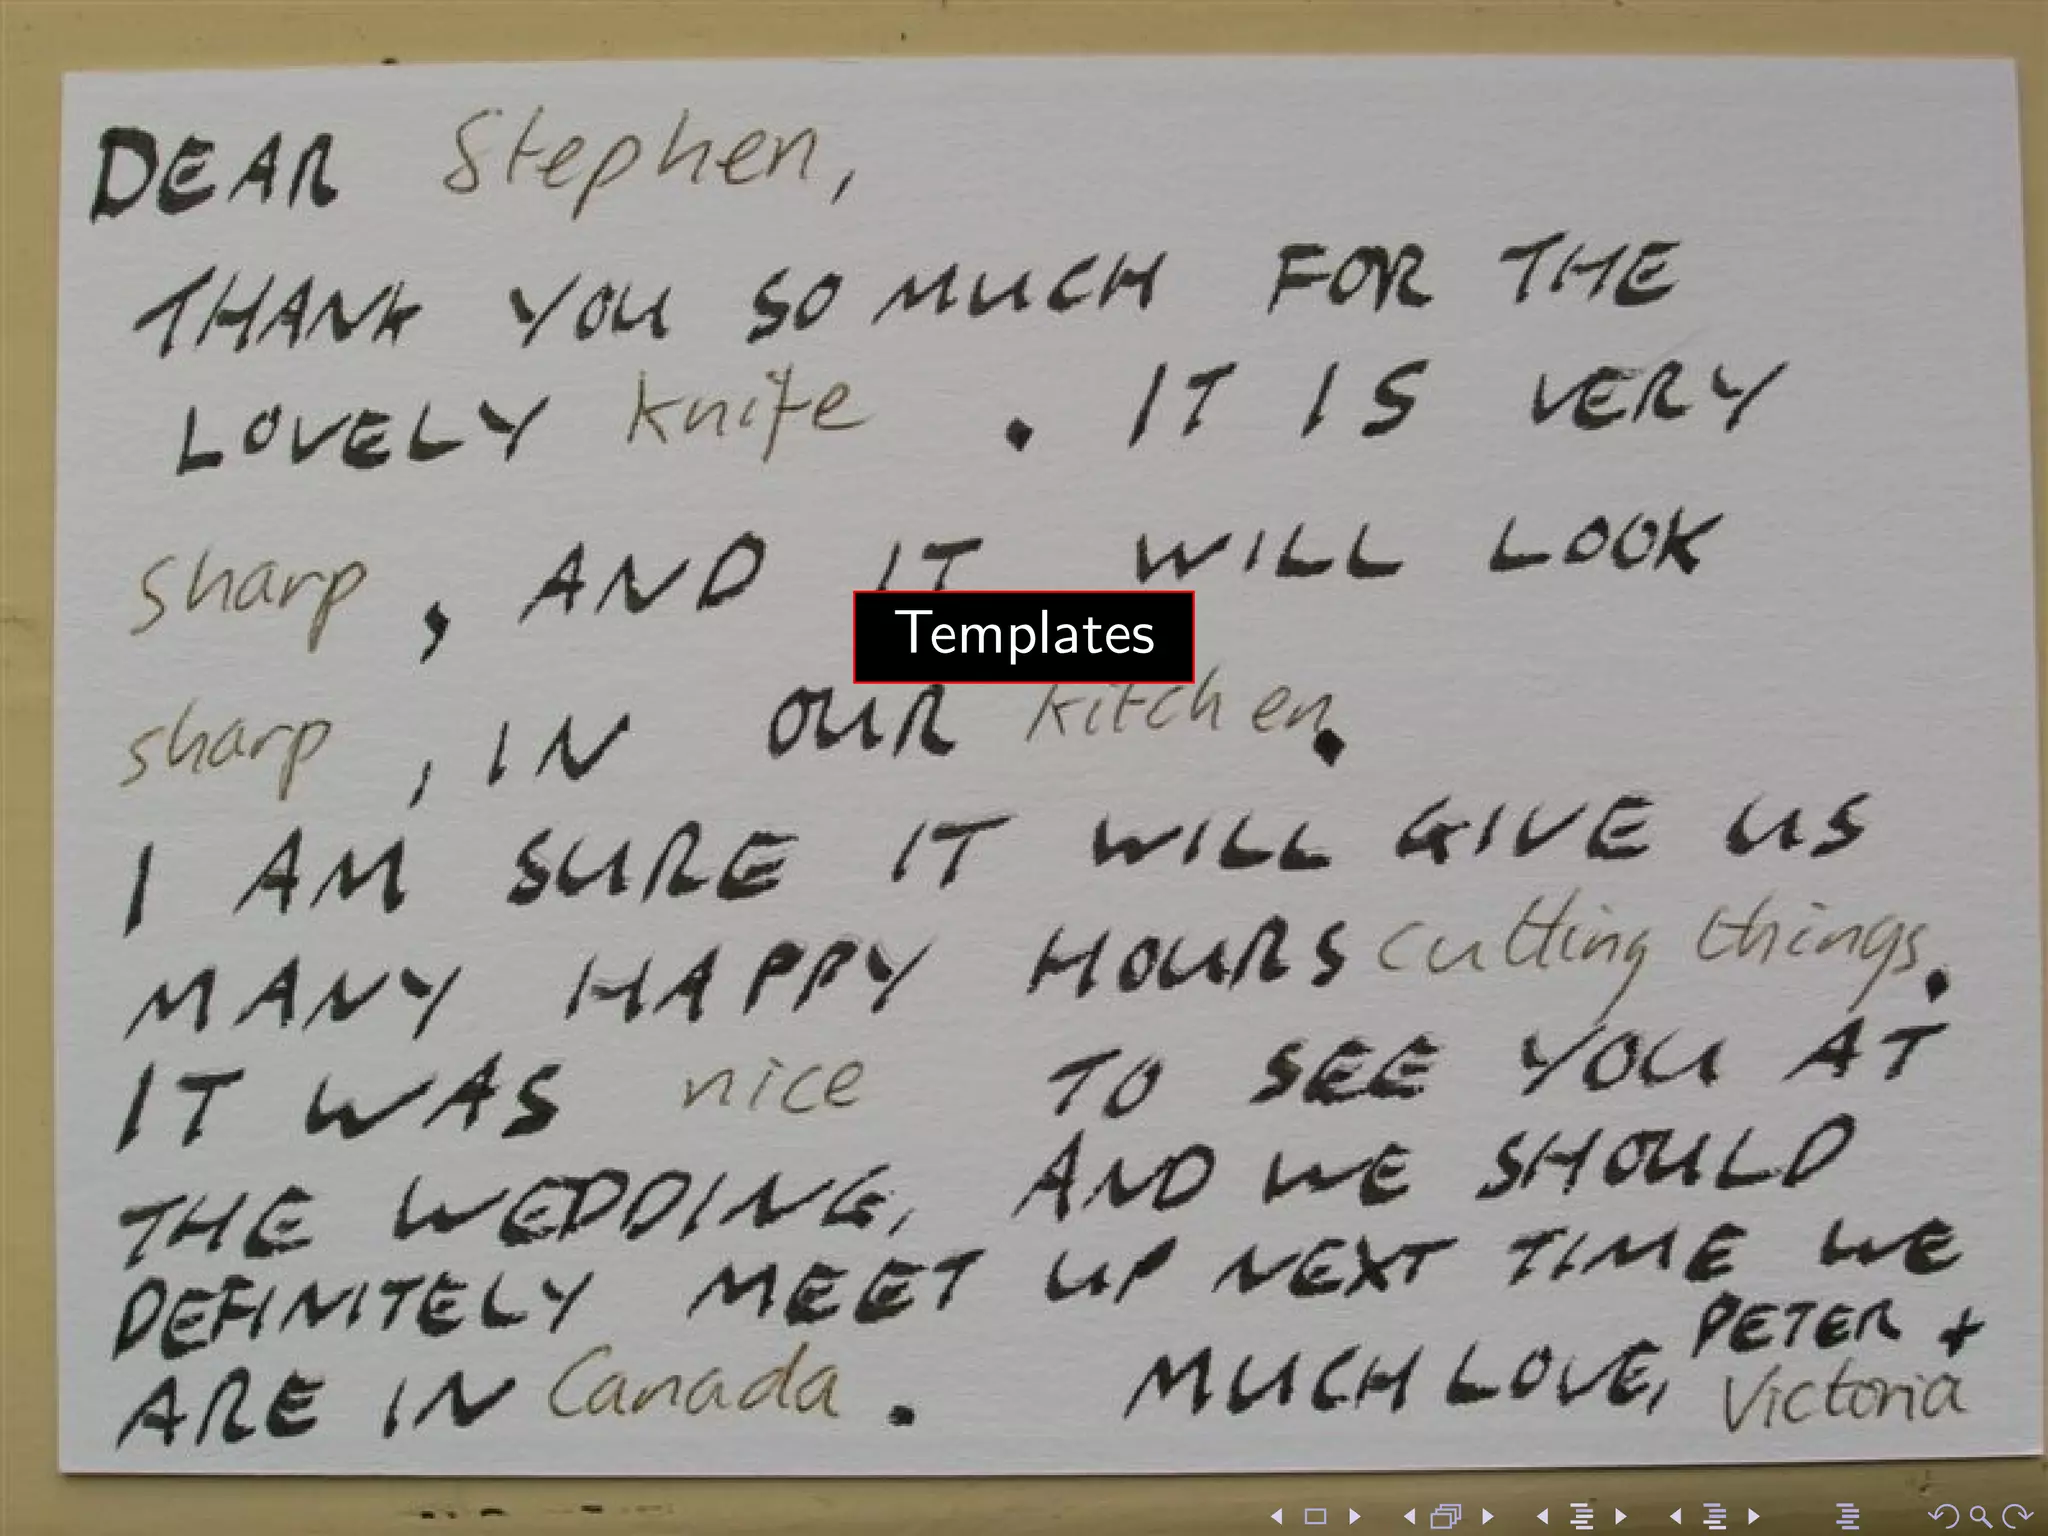 DEAR Stephen,
THANK YOU SO MUCH FOR THE
LOVELY knife . IT IS VERY
sharp , AND IT WILL LOOK
Templates
sharp , IN OUR kitchen.
I AM SURE IT WILL GIVE US
MANY HAPPY HOURS cutting things.
IT WAS nice TO SEE YOU AT
THE WEDDING, AND WE SHOULD
DEFINITELY MEET UP NEXT TIME WE
ARE IN Canada . MUCH LOVE, PETER +
Victoria